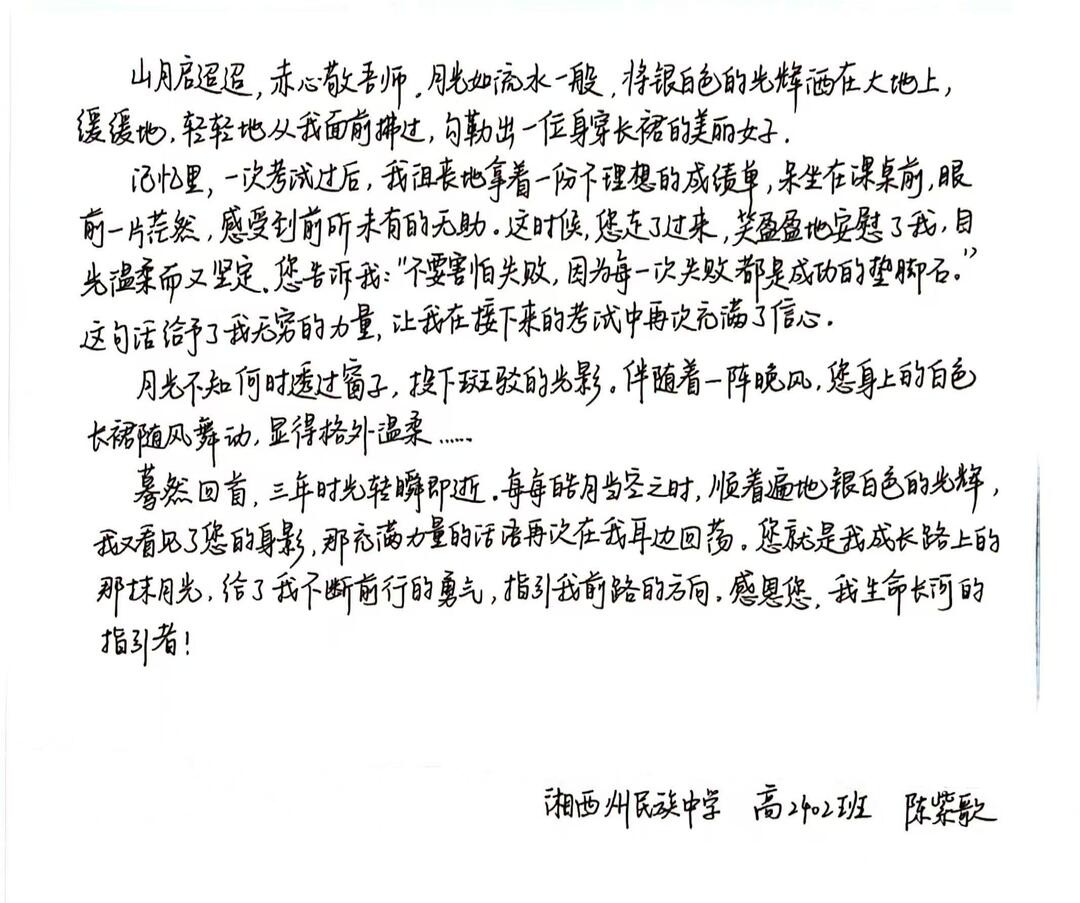 山月启迢迢,赤心敬吾师.月光如流水一般,将银白色的光辉洒在大地上,
缓缓地,轻轻地从我面前拂过,勾勒出一位身穿长裙的美丽女子.
记忆里,一次考试过后,我沮丧地拿着一份不理想的成绩单,呆坐在课桌前,眼
前一片茫然,感受到前所未有的无助。这时候,您走了过来,笑盈盈地安慰了我,目
光温柔而又坚定.您告诉我:"不要害怕失败,因为每一次失败都是成功的垫脚石。"
这句话给予了我无穷的力量,让我在接下来的考试中再次充满了信心。
月光不知何时透过窗子,投下斑驳的光影。伴随着一阵晚风,您身上的白色
长裙随风舞动,显得格外温柔……
蓦然回首,三年时光转瞬即逝.每每皓月当空之时,顺着遍地银白色的光辉,
我又看见了您的身影,那充满力量的话语再次在我耳边回荡。您就是我成长路上的
那抹月光,给了我不断前行的勇气,指引我前路的方向.感恩您,我生命长河的
指引者!
湘西州民族中学 高2402班 陈紫歌